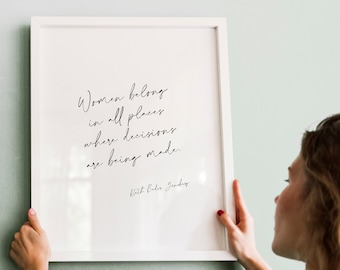 Women belong
in all places
where decisions
are being made.
Ruth Bader Ginsburg